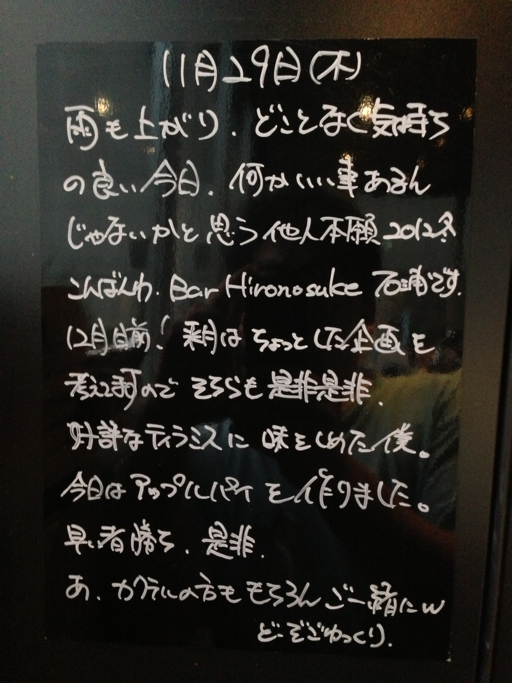 11月29日(木)
雨も上がり、どことなく気持ち
の良い今日、何かいい事あるん
じゃないかと思う他人本願2012冬
こんばんわ、Bar Hironosuke 石浦です。
12月目前!来月はちょっとした企画も
考えてますので そちらも是非是非、
好評なティラミスに味をしめた僕。
今日はアップルパイを作りました。
早い者勝ち、是非、
あ、カクテルの方ももちろんご一緒にw
どうぞごゆっくり、